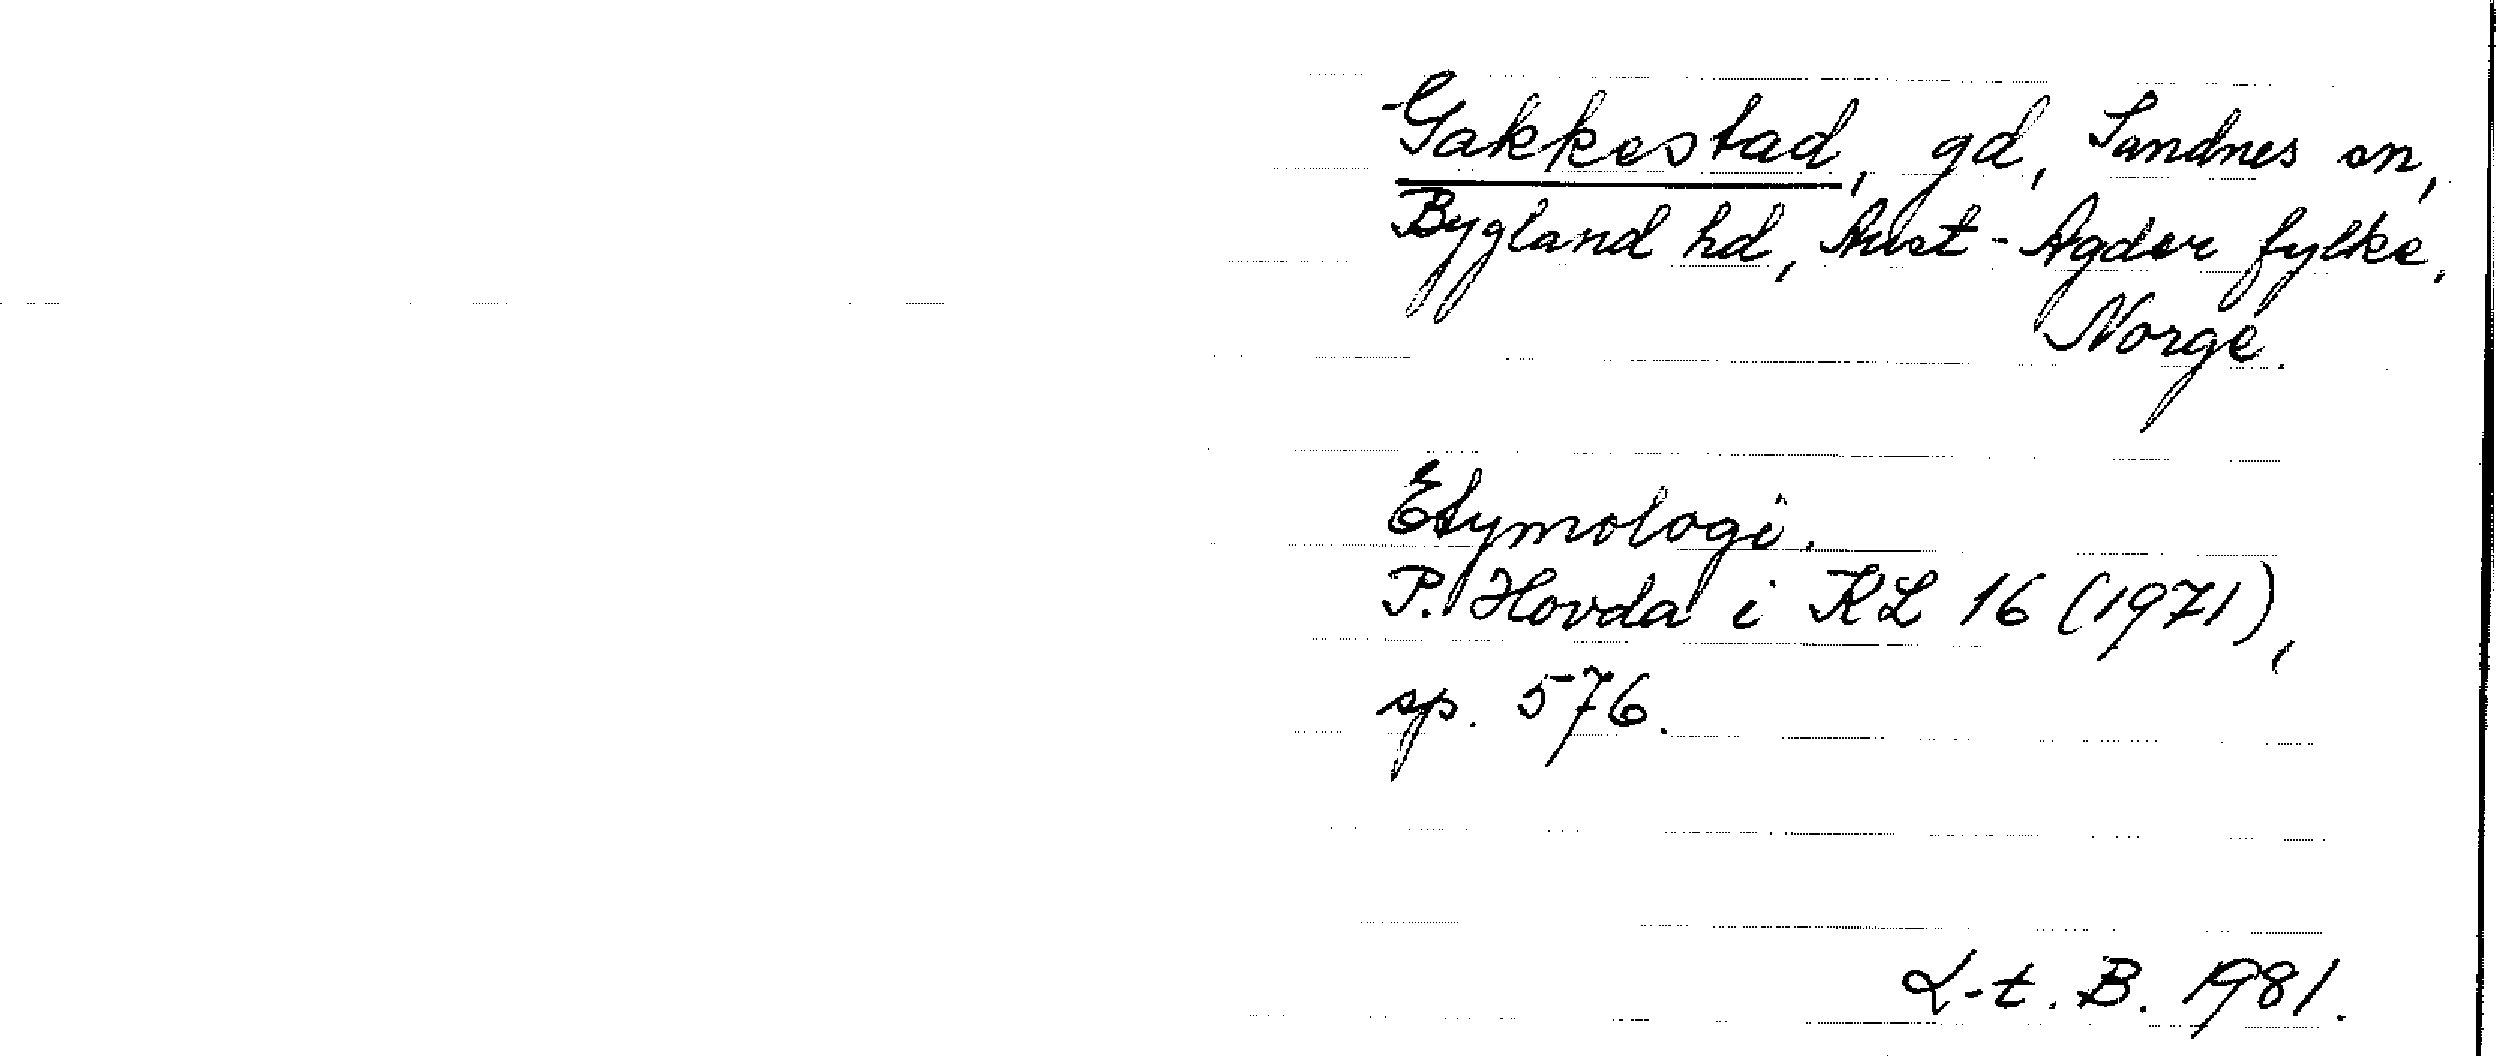 Gakkestad, gd, Sandnes sn,
Bygland hd, Aust-Agder fylke,
Norge.
Etymologi.
P. Hovda i KL 16 (1971),
sp. 576.
L-t. B. 1981.